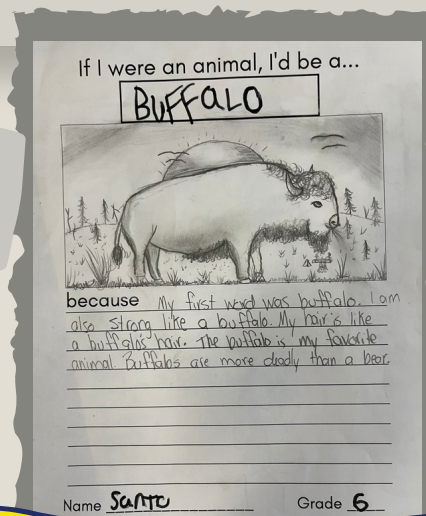 If I were an animal, I'd be a...
BUFFaLO
because My first word was buffalo. I am
also strong like a buffalo. My hair is like
a buffalo's hair. The buffalo is my favorite
animal. Buffalos are more deadly than a bear.
Name Grade 6